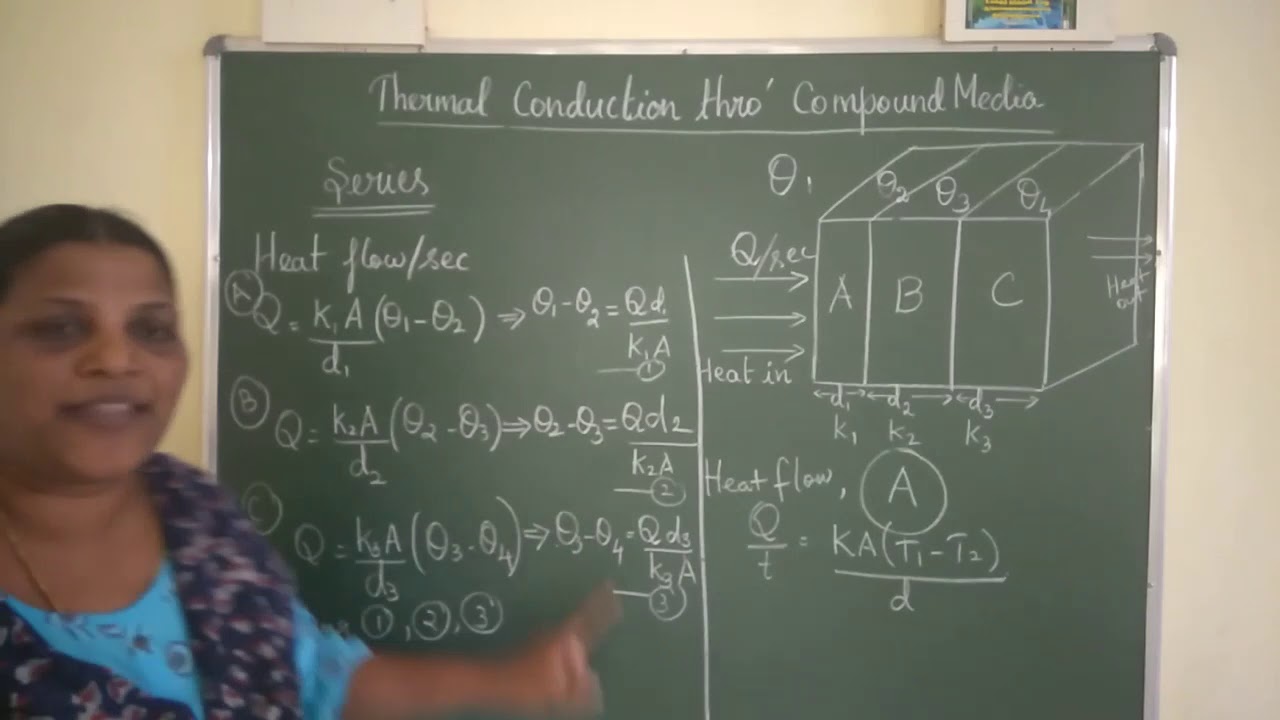 Thermal Conduction thro' Compound Media
Series
Heat flow/sec
(A) Q = K₁A/d₁ (θ₁ - θ₂) ⇒ θ₁ - θ₂ = Qd₁/K₁A — ①
(B) Q = K₂A/d₂ (θ₂ - θ₃) ⇒ θ₂ - θ₃ = Qd₂/K₂A — ②
(C) Q = K₃A/d₃ (θ₃ - θ₄) ⇒ θ₃ - θ₄ = Qd₃/K₃A — ③
①, ②, ③
θ₁ θ₂ θ₃ θ₄
Q/sec
A B C
Heat out
Heat in
d₁ d₂ d₃
K₁ K₂ K₃
Heat flow, (A)
Q/t = KA(T₁ - T₂)/d